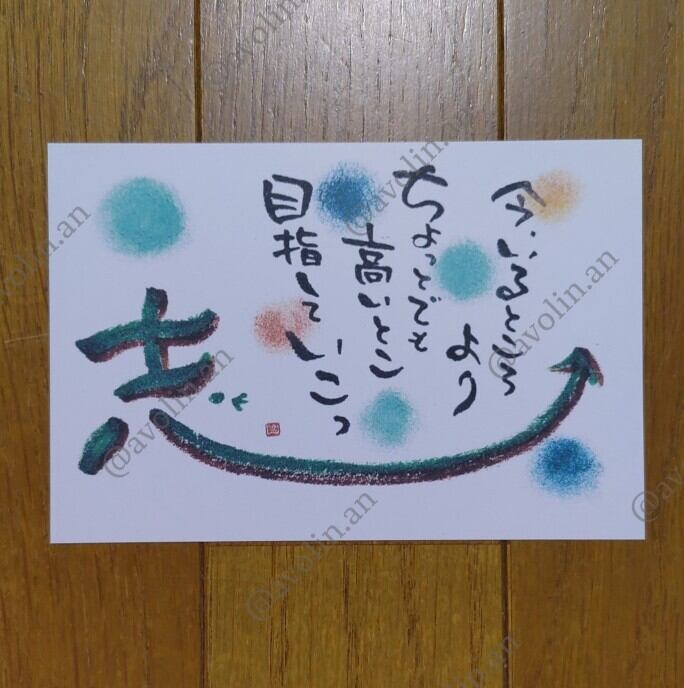 今いるところ
より
ちょっとでも
高いとこ
目指して
いこっ
志
@avolin.an
@avolin.an
@avolin.an
@avolin.an
@avolin.an